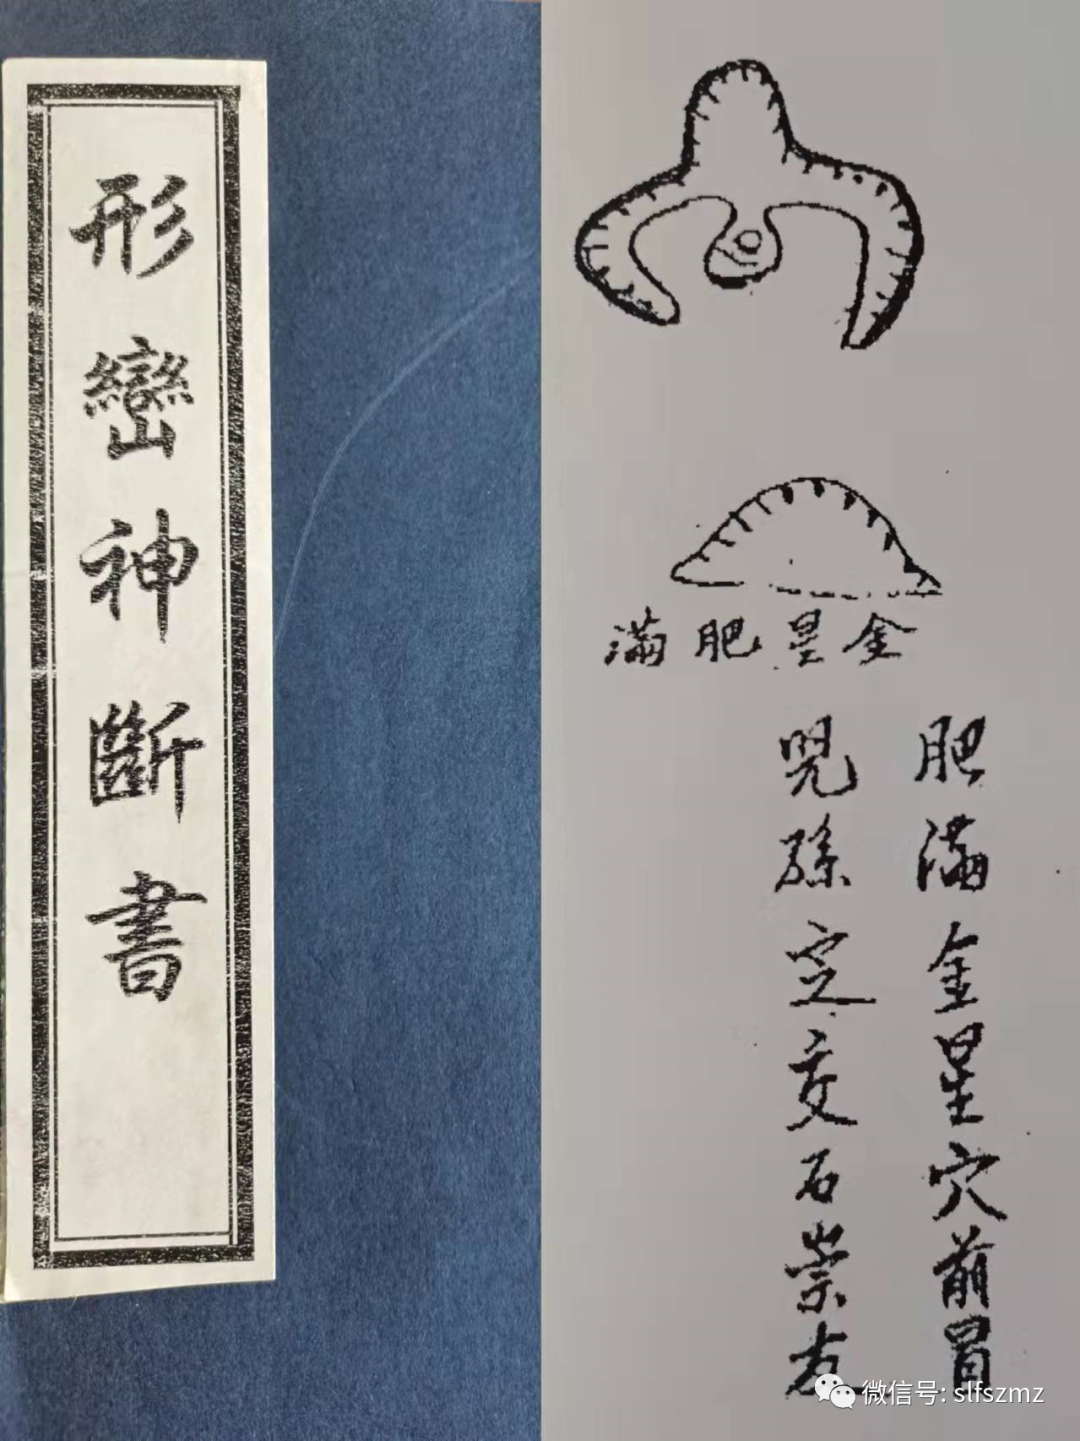 形巒神斷書
金星肥滿
肥滿金星穴前冒
兒孫定交石崇友
微信号: slfszmz